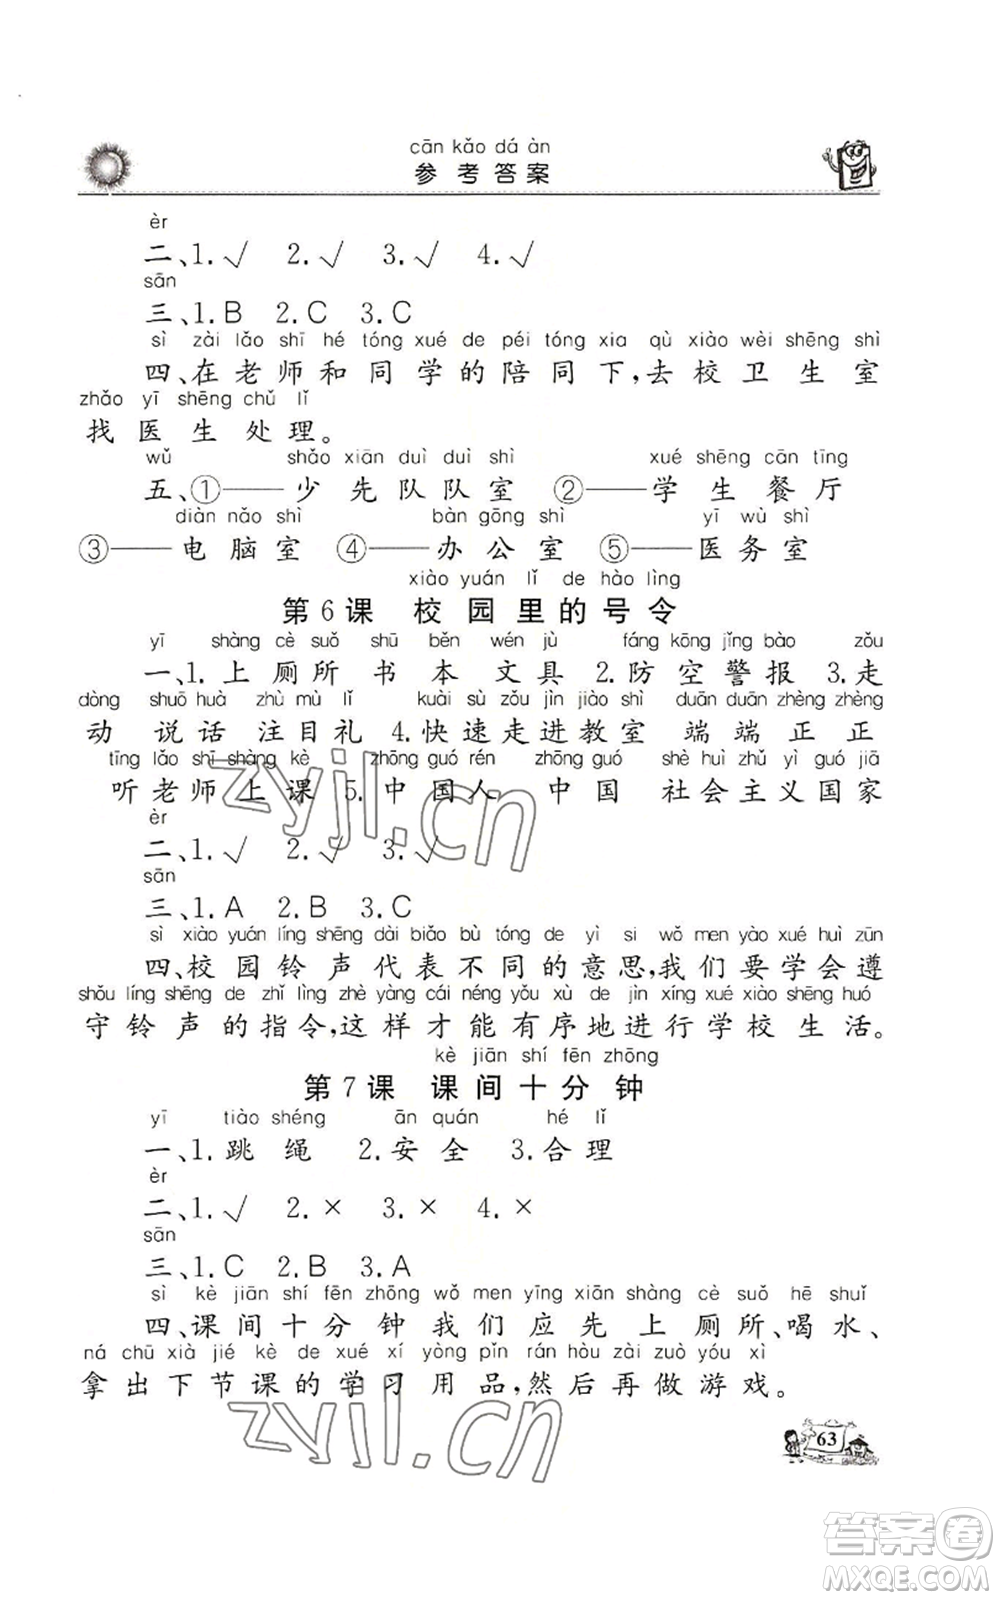 cān kǎo dá àn
参考答案
èr
二、1.√ 2.√ 3.√ 4.√
sān
三、1.B 2.C 3.C
sì zài lǎo shī hé tóng xué de péi tóng xia qù xiào wèi shēng shì
四、在老师和同学的陪同下,去校卫生室
zhǎo yī shēng chǔ lǐ
找医生处理。
wǔ shǎo xiān duì duì shì xué shēng cān tīng
五、①——少先队队室 ②——学生餐厅
diàn nǎo shì bàn gōng shì yī wù shì
③——电脑室 ④——办公室 ⑤——医务室
xiào yuán lǐ de hào lìng
第6课 校园里的号令
yī shàng cè suǒ shū běn wén jù fáng kōng jǐng bào zǒu
一、1.上厕所 书本 文具 2.防空警报 3.走
dòng shuō huà zhù mù lǐ kuài sù zǒu jìn jiào shì duān duān zhèng zhèng
动 说话 注目礼 4.快速走进教室 端端正正
tīng lǎo shī shàng kè zhōng guó rén zhōng guó shè huì zhǔ yì guó jiā
听老师上课 5.中国人 中国 社会主义国家
èr
二、1.√ 2.√ 3.√
sān
三、1.A 2.B 3.C
sì xiào yuán líng shēng dài biǎo bù tóng de yì si wǒ men yào xué huì zūn
四、校园铃声代表不同的意思,我们要学会遵
shǒu líng shēng de zhǐ lìng zhè yàng cái néng yǒu xù de jìn xíng xué xiào shēng huó
守铃声的指令,这样才能有序地进行学校生活。
kè jiān shí fēn zhōng
第7课 课间十分钟
yī tiào shéng ān quán hé lǐ
一、1.跳绳 2.安全 3.合理
èr
二、1.√ 2.× 3.× 4.×
sān
三、1.C 2.B 3.A
sì kè jiān shí fēn zhōng wǒ men yīng xiān shàng cè suǒ hē shuǐ
四、课间十分钟我们应先上厕所、喝水、
ná chū xià jié kè de xué xí yòng pǐn rán hòu zài zuò yóu xì
拿出下节课的学习用品,然后再做游戏。
63
zyjl.cn
zyjl.cn
答案卷
MXQE.COM